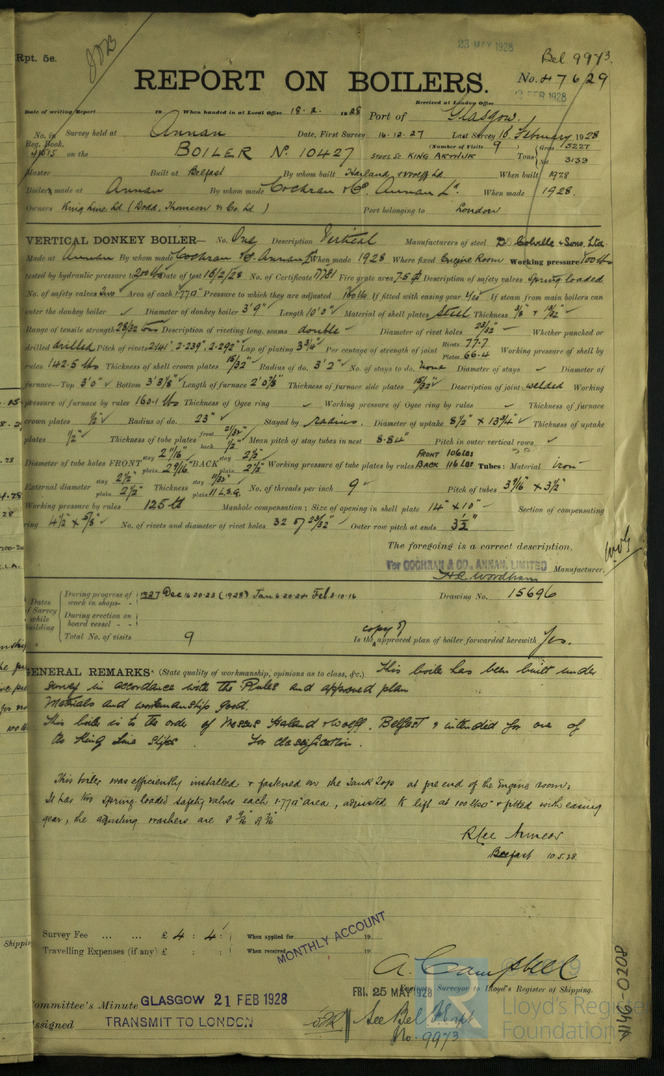 23 MAY 1928
Rpt. 5e.
Bel 9973.
REPORT ON BOILERS.
No. 47629
FEB 1928
Received at London Office
Date of writing Report 19 When handed in at Local Office 18. 2. 1928 Port of Glasgow.
No. in Survey held at Annan Date, First Survey 16.12.27 Last Survey 16 February 1928
Reg. Book.
(Number of Visits 9) Gross 13227
on the BOILER No. 10427 STEEL Sc KING ARTHUR Tons
Master Built at Belfast By whom built Harland & Wolff Ld When built 1928
Boiler made at Annan By whom made Cochran & Co. Annan Ld. When made 1928.
Owners King Line Ld (Dodd, Thomson & Co. Ld) Port belonging to London
VERTICAL DONKEY BOILER— No. One Description Vertical Manufacturers of steel D. Colville & Sons, Ltd
Made at Annan By whom made Cochran & Co. Annan Ld When made 1928 Where fixed Engine Room Working pressure 100 lbs
tested by hydraulic pressure to 200 lbs Date of test 16/2/28 No. of Certificate Fire grate area Description of safety valves Spring loaded
No. of safety valves Two Area of each 1.770" Pressure to which they are adjusted 100 lbs If fitted with easing gear Yes If steam from main boilers can
enter the donkey boiler ✓ Diameter of donkey boiler 3' 9" Length 10' 0" Material of shell plates Steel Thickness
Range of tensile strength 28/32 Tons Description of riveting long. seams double Diameter of rivet holes 23/32" Whether punched or
drilled drilled Pitch of rivets 2.141" 2.239" 2.292" Lap of plating Per centage of strength of joint Rivets 77.7 Plates 66.4 Working pressure of shell by
rules 142.5 lbs Thickness of shell crown plates 15/32" Radius of do. 3' 2" No. of stays to do. none Diameter of stays ✓ Diameter of
furnace—Top 3' 0" Bottom 3' 3 3/8" Length of furnace 2' 0 7/8" Thickness of furnace side plates 15/32" Description of joint welded Working
pressure of furnace by rules 160.1 lbs Thickness of Ogee ring ✓ Working pressure of Ogee ring by rules ✓ Thickness of furnace
crown plates 1/2" Radius of do. 23" Stayed by radius. Diameter of uptake 8 1/2" x 13 3/4" Thickness of uptake
plates 1/2" Thickness of tube plates front 21/32" back 1/2" Mean pitch of stay tubes in nest 8.84" Pitch in outer vertical rows ✓
Diameter of tube holes FRONT stay 2 11/16" plain 2 9/16" BACK stay 2 1/2" plain 2 1/2" Working pressure of tube plates by rules FRONT 106 lbs BACK 116 lbs Tubes: Material iron
External diameter stay 2 1/2" plain 2 1/2" Thickness stay plain 11 L.S.G No. of threads per inch 9 Pitch of tubes 3 9/16" x 3 1/2"
Working pressure by rules 125 lb Manhole compensation: Size of opening in shell plate 14" x 10" Section of compensating
ring 4 1/2" x 5/8" No. of rivets and diameter of rivet holes 32 of 23/32" Outer row pitch at ends 3 1/2"
The foregoing is a correct description,
For COCHRAN & CO., ANNAN, LIMITED Manufacturer.
H.C. Woodham
Dates of Survey while building
During progress of work in shops - - 1927 Dec 16.20.23 (1928) Jan 6.20.24 Feb 2.10.16
During erection on board vessel - - -
Total No. of visits 9
Drawing No. 15696
Is the copy of approved plan of boiler forwarded herewith Yes.
GENERAL REMARKS (State quality of workmanship, opinions as to class, &c.) This boiler has been built under
survey in accordance with the Rules and approved plan
Materials and workmanship good.
This boiler is to the order of Messrs Harland & Wolff. Belfast & intended for one of
the King Line Ships. For classification.
This boiler was efficiently installed & fastened on the tank top at fore end of the Engine room.
It has two spring loaded safety valves each 1.770" area, adjusted to lift at 100 lbs & fitted with easing
gear, the adjusting washers are
Belfast 10.5.28
Survey Fee ... ... £ 4 : 4 : When applied for 19
Travelling Expenses (if any) £ : : When received 19
MONTHLY ACCOUNT
A. Campbell
Surveyor to Lloyd's Register of Shipping.
Committee's Minute GLASGOW 21 FEB 1928
FRI. 25 MAY 1928
Assigned TRANSMIT TO LONDON
See Bel Rpt
No. 9973
Lloyd's Register
Foundation
1146-0208